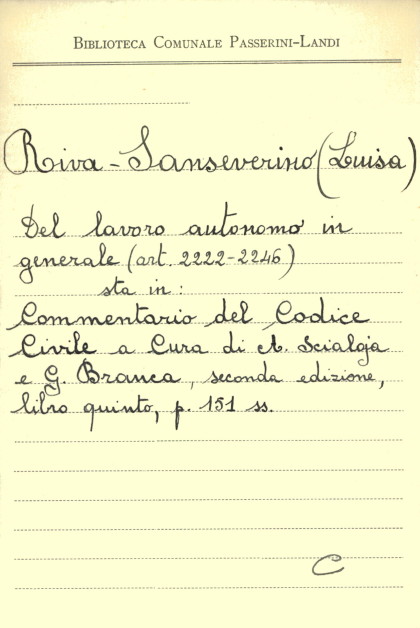 BIBLIOTECA COMUNALE PASSERINI-LANDI
Riva-Sanseverino (Luisa)
Del lavoro autonomo in
generale (art. 2222-2246)
sta in:
Commentario del Codice
Civile a Cura di A. Scialoja
e G. Branca, seconda edizione,
libro quinto, p. 151 ss.
C